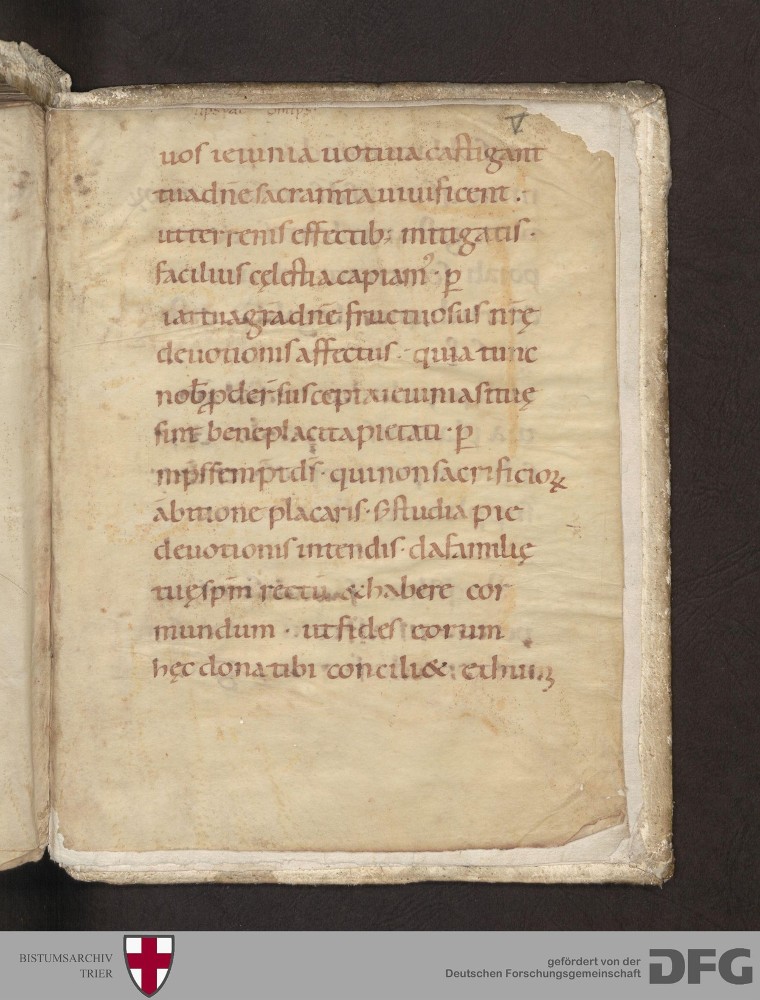 V
uos ieiunia uotiua castigant
tua dn̄e sacram̄ta uiuificent .
ut terrenis effectib; mitigatis ·
facilius cęlestia capiam᾿ · ꝑ
iat tua gr̄a dn̄e fructuosus nr̄ę
deuotionis affectus · quia tunc
nob̄ ꝓder̄ suscepta ieiunia si tuę
sint beneplacita pietati · ꝑ
mp̄s semp̄t ds̄ · qui non sacrificioꝝ
ambitione placaris · s; studia pie
deuotionis intendis · da familię
tuę sp̄m rectū & habere cor
mundum · ut fides eorum
hęc dona tibi concili& · et humi
BISTUMSARCHIV
TRIER
gefördert von der
Deutschen Forschungsgemeinschaft
DFG